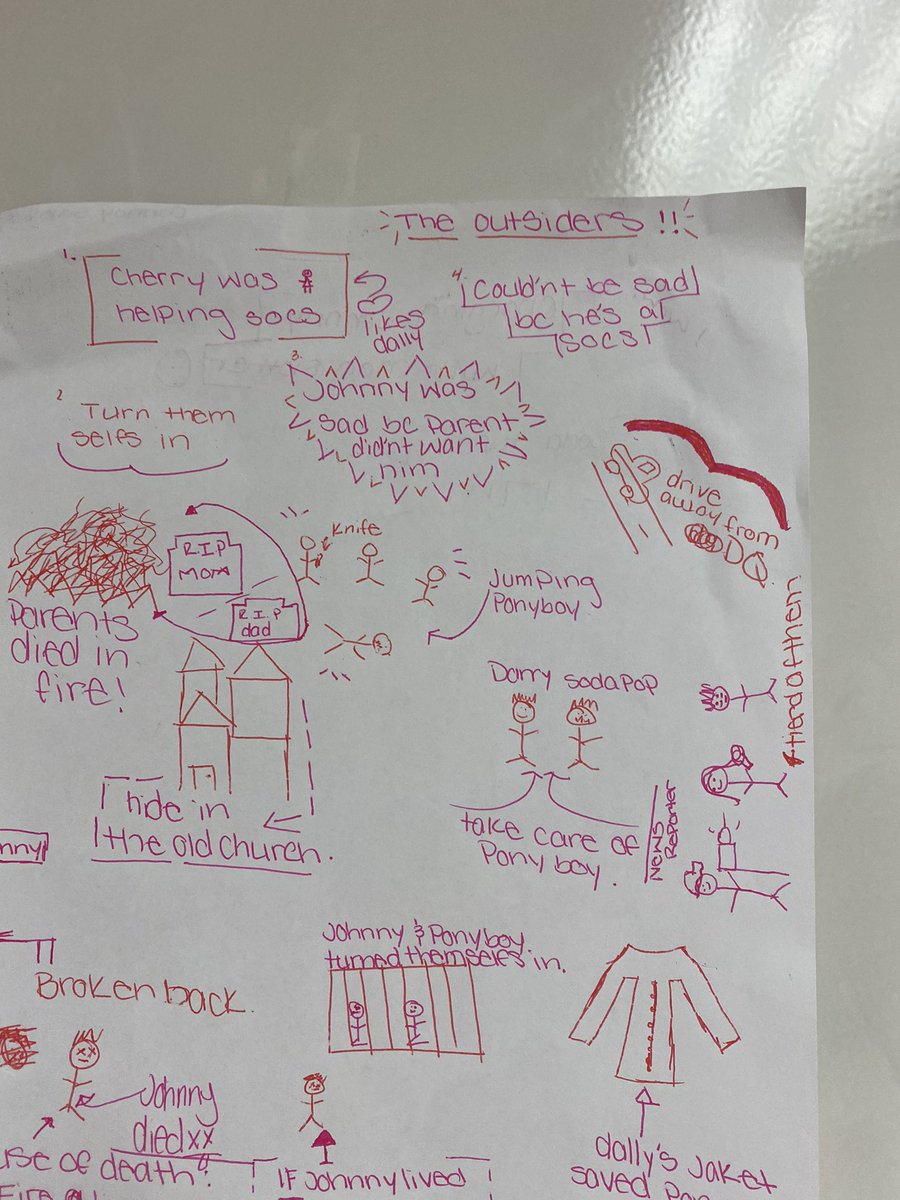 The outsiders !!
1.
Cherry was
helping socs
likes
dally
4.
Could'nt be sad
bc he's a
socs
2
Turn them
selfs in
3.
Johnny was
sad bc parent
didn't want
him
drive
away from
DQ
R.I.P
mom
R.I.P
dad
Knife
Jumping
Ponyboy
Parents
died in
fire!
Darry sodapop
take care of
Pony boy.
tierd of them
News
Reporter
hide in
the old church.
nny
Broken back.
Johnny & Ponyboy
turned themselfs in.
Johnny
died xx
use of death
Fire
IF Johnny lived
dally's Jaket
saved